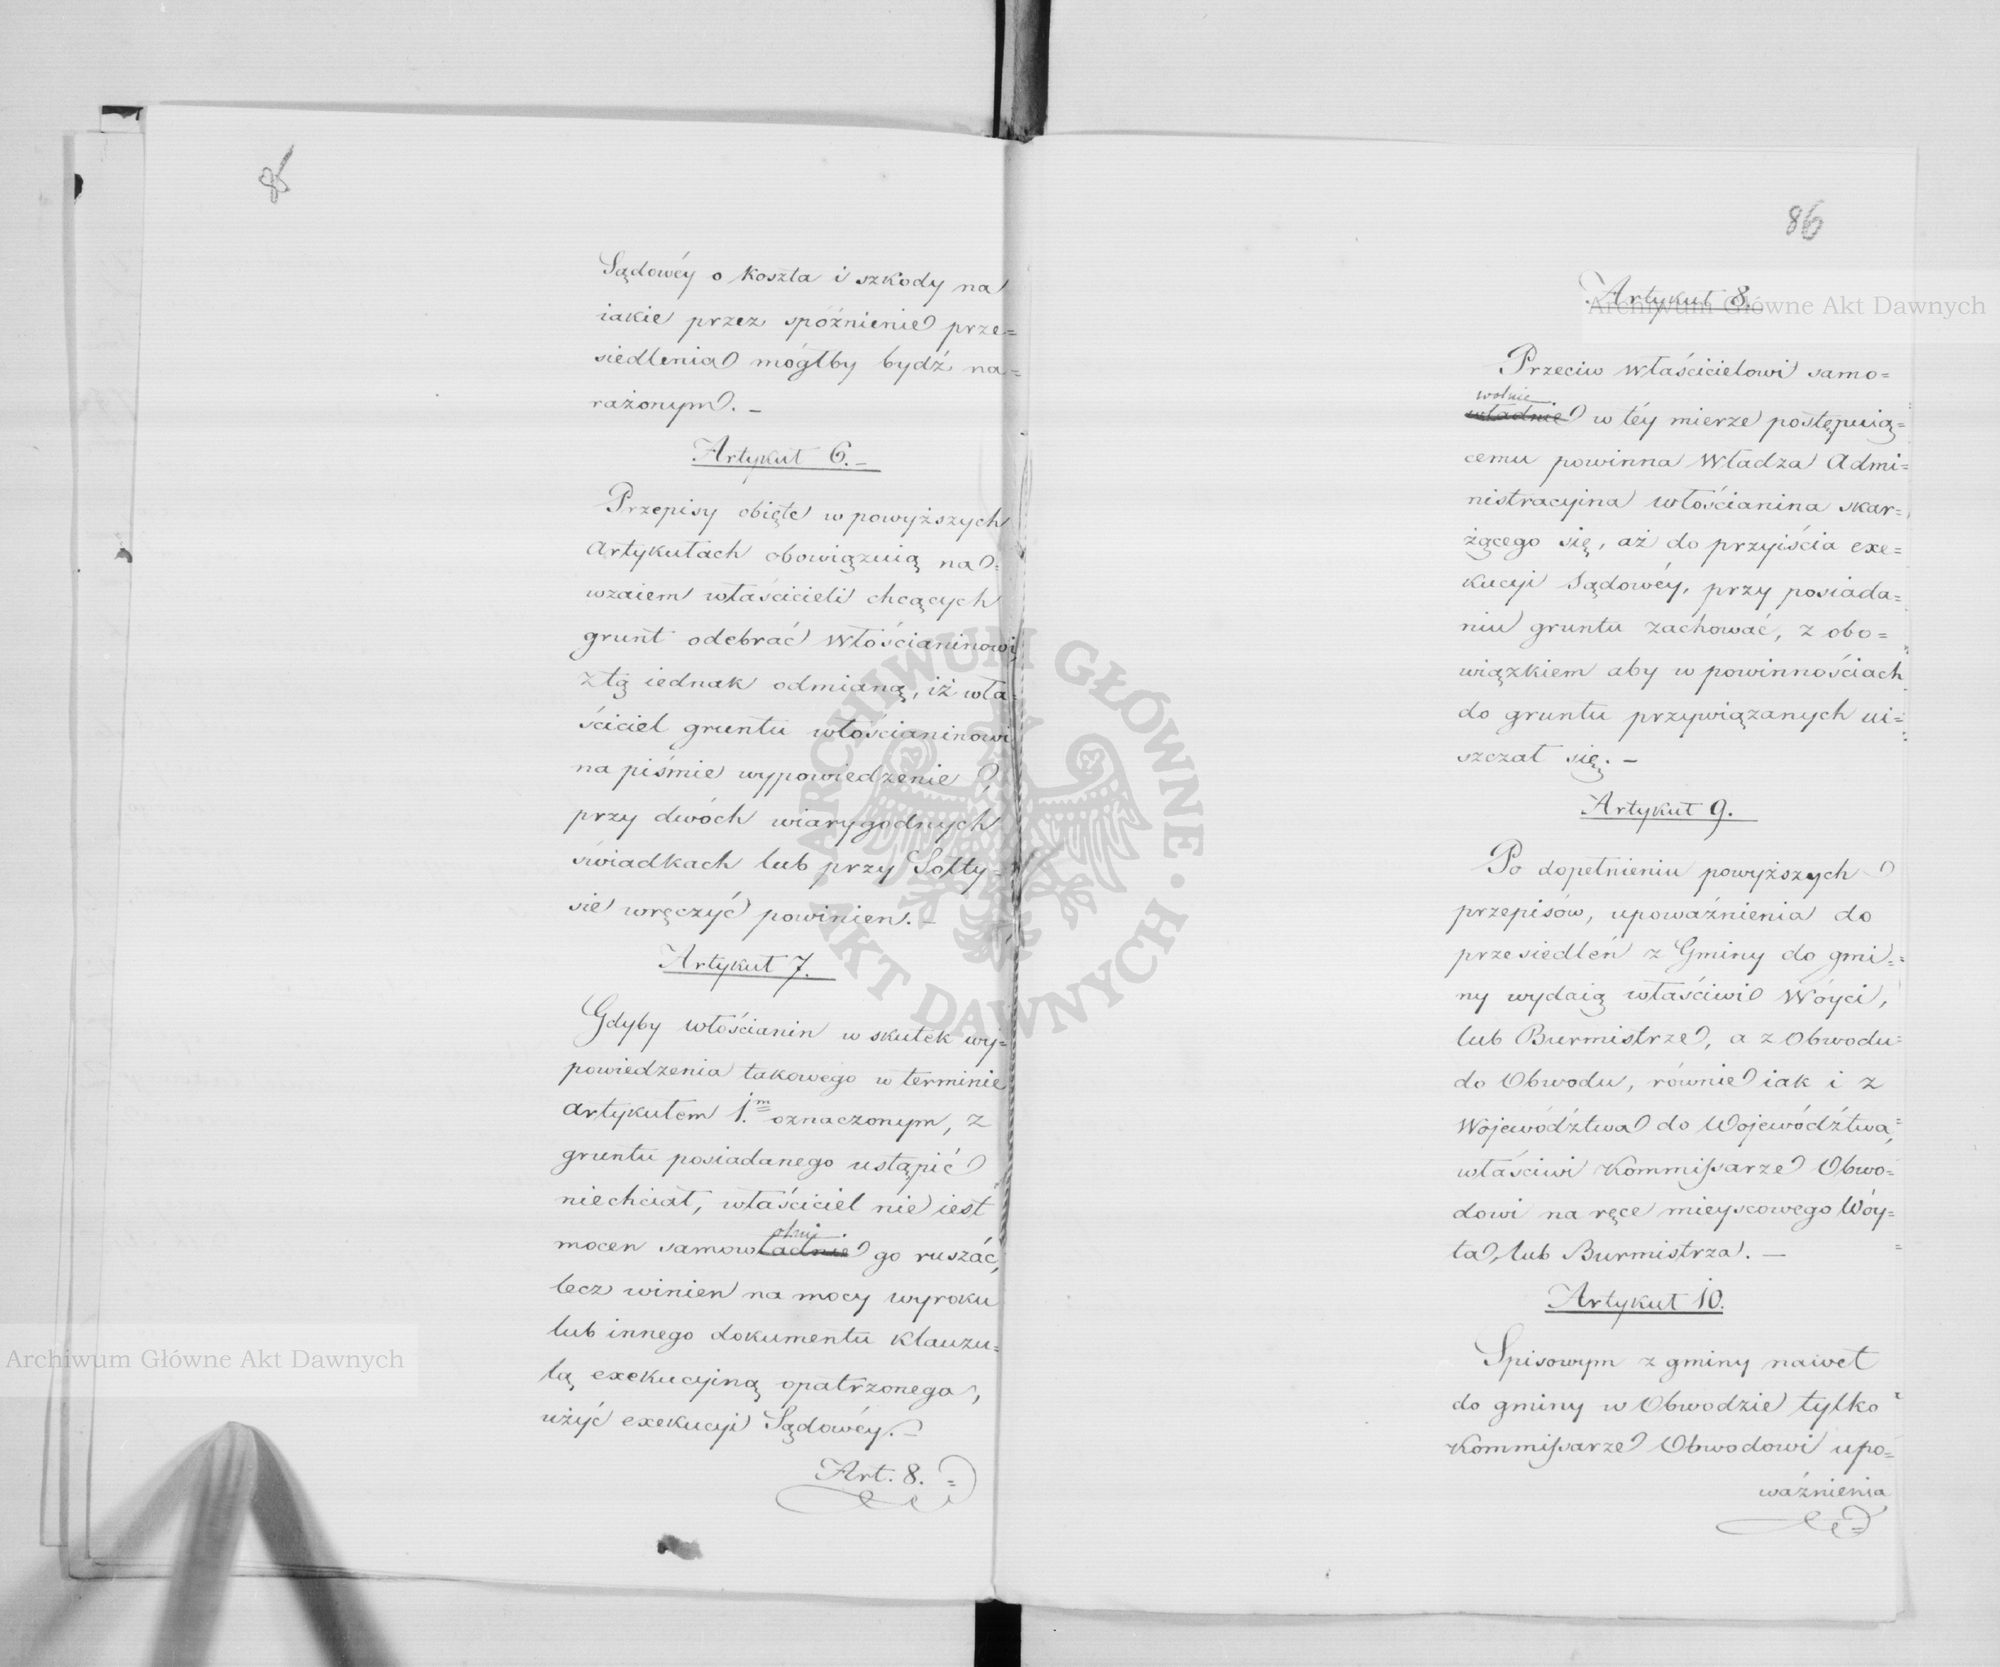 85
Sądowéy o koszta i szkody na
iakie przez spóźnienie prze=
siedlenia mógłby bydź na=
rażonym. –
Artykuł 6. –
Przepisy obięte w powyższych
Artykułach obowiązuią na=
wzaiem właścicieli chcących
grunt odebrać Włościaninowi
z tą iednak odmianą, iż wła=
ściciel gruntu włościaninowi
na piśmie wypowiedzenie,
przy dwóch wiarygodnych
świadkach lub przy Sołty=
sie wręczyć powinien. –
Artykuł 7.
Gdyby włościanin w skutek wy=
powiedzenia takowego w terminie
artykułem 1.m oznaczonym, z
gruntu posiadanego ustąpić
niechciał, właściciel nie iest
olnie
mocen samowładnie go ruszać,
lecz winien na mocy wyroku
lub innego dokumentu klauzu=
lą exekucyiną opatrzonego,
użyć exekucyi Sądowéy. –
Art. 8. =
86
Artykuł 8.
Przeciw właścicielowi samo=
wolnie
władnie w téy mierze postępuią=
cemu powinna Władza Admi=
nistracyina włościanina skar=
żącego się, aż do przyiścia exe=
kucyi Sądowéy, przy posiada=
niu gruntu zachować, z obo=
wiązkiem aby w powinnościach
do gruntu przywiązanych ui=
szczał się. –
Artykuł 9.
Po dopełnieniu powyższych
przepisów, upoważnienia do
przesiedleń z Gminy do gmi=
ny wydaią właściwi Wóyci,
lub Burmistrze, a z Obwodu
do Obwodu, równie iak i z
Województwa do Województwa,
właściwi Kommissarze Obwo=
dowi na ręce mieyscowego Wóy=
ta, lub Burmistrza. –
Artykuł 10.
Spisowym z gminy nawet
do gminy w Obwodzie tylko
Kommissarze Obwodowi upo=
ważnienia
Archiwum Główne Akt Dawnych
Archiwum Główne Akt Dawnych
ARCHIWUM GŁÓWNE · AKT DAWNYCH ·